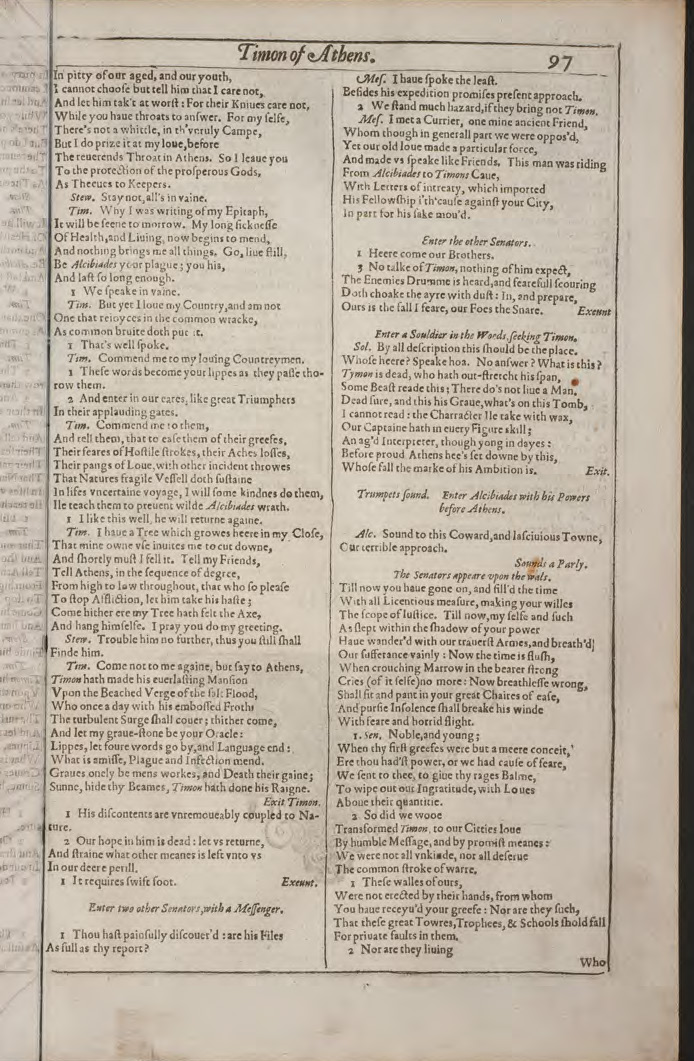 Timon of Athens.
97
In pitty of our aged, and our youth,
I cannot choose but tell him that I care not,
And let him tak't at worst : For their Kniues care not,
While you haue throats to answer. For my selfe,
There's not a whittle, in th'vnruly Campe,
But I do prize it at my loue,before
The reuerends Throat in Athens. So I leaue you
To the protection of the prosperous Gods,
As Theeues to Keepers.
Stew. Stay not,all's in vaine.
Tim. Why I was writing of my Epitaph,
It will be seene to morrow. My long sicknesse
Of Health,and Liuing, now begins to mend,
And nothing brings me all things. Go, liue still,
Be Alcibiades your plague ; you his,
And last so long enough.
1 We speake in vaine.
Tim. But yet I loue my Country,and am not
One that reioyces in the common wracke,
As common bruite doth put it.
1 That's well spoke.
Tim. Commend me to my louing Countreymen.
1 These words become your lippes as they passe tho-
row them.
2 And enter in our eares, like great Triumphers
In their applauding gates.
Tim. Commend me to them,
And tell them, that to ease them of their greefes,
Their feares of Hostile strokes, their Aches losses,
Their pangs of Loue,with other incident throwes
That Natures fragile Vessell doth sustaine
In lifes vncertaine voyage, I will some kindnes do them,
Ile teach them to preuent wilde Alcibiades wrath.
1 I like this well, he will returne againe.
Tim. I haue a Tree which growes heere in my Close,
That mine owne vse inuites me to cut downe,
And shortly must I fell it. Tell my Friends,
Tell Athens, in the sequence of degree,
From high to low throughout, that who so please
To stop Affliction, let him take his haste ;
Come hither ere my Tree hath felt the Axe,
And hang himselfe. I pray you do my greeting.
Stew. Trouble him no further, thus you still shall
Finde him.
Tim. Come not to me againe, but say to Athens,
Timon hath made his euerlasting Mansion
Vpon the Beached Verge of the salt Flood,
Who once a day with his embossed Froth
The turbulent Surge shall couer ; thither come,
And let my graue-stone be your Oracle :
Lippes, let foure words go by,and Language end :
What is amisse, Plague and Infection mend.
Graues onely be mens workes, and Death their gaine;
Sunne, hide thy Beames, Timon hath done his Raigne.
Exit Timon.
1 His discontents are vnremoueably coupled to Na-
ture.
2 Our hope in him is dead : let vs returne,
And straine what other meanes is left vnto vs
In our deere perill.
1 It requires swift foot. Exeunt.
Enter two other Senators,with a Messenger.
1 Thou hast painfully discouer'd : are his Files
As full as thy report?
Mes. I haue spoke the least.
Besides his expedition promises present approach.
2 We stand much hazard,if they bring not Timon.
Mes. I met a Currier, one mine ancient Friend,
Whom though in generall part we were oppos'd,
Yet our old loue made a particular force,
And made vs speake like Friends. This man was riding
From Alcibiades to Timons Caue,
With Letters of intreaty, which imported
His Fellowship i'th'cause against your City,
In part for his sake mou'd.
Enter the other Senators.
1 Heere come our Brothers.
3 No talke of Timon, nothing of him expect,
The Enemies Drumme is heard,and fearefull scouring
Doth choake the ayre with dust : In, and prepare,
Ours is the fall I feare, our Foes the Snare. Exeunt
Enter a Souldier in the Woods,seeking Timon.
Sol. By all description this should be the place.
Whose heere? Speake hoa. No answer ? What is this ?
Tymon is dead, who hath out-stretcht his span,
Some Beast reade this ; There do's not liue a Man.
Dead sure, and this his Graue,what's on this Tomb,
I cannot read : the Charracter Ile take with wax,
Our Captaine hath in euery Figure skill ;
An ag'd Interpreter, though yong in dayes :
Before proud Athens hee's set downe by this,
Whose fall the marke of his Ambition is. Exit.
Trumpets sound. Enter Alcibiades with his Powers
before Athens.
Alc. Sound to this Coward,and lasciuious Towne,
Our terrible approach.
Sounds a Parly.
The Senators appeare vpon the wals.
Till now you haue gone on, and fill'd the time
With all Licentious measure, making your willes
The scope of Iustice. Till now,my selfe and such
As slept within the shadow of your power
Haue wander'd with our trauerst Armes,and breath'd
Our sufferance vainly : Now the time is flush,
When crouching Marrow in the bearer strong
Cries (of it selfe) no more : Now breathlesse wrong,
Shall sit and pant in your great Chaires of ease,
And pursie Insolence shall breake his winde
With feare and horrid flight.
1. Sen. Noble,and young ;
When thy first greefes were but a meere conceit,
Ere thou had'st power, or we had cause of feare,
We sent to thee, to giue thy rages Balme,
To wipe out our Ingratitude, with Loues
Aboue their quantitie.
2 So did we wooe
Transformed Timon, to our Citties loue
By humble Message, and by promist meanes :
We were not all vnkinde, nor all deserue
The common stroke of warre.
1 These walles of ours,
Were not erected by their hands, from whom
You haue receyu'd your greefe : Nor are they such,
That these great Towres,Trophees, & Schools shold fall
For private faults in them.
2 Nor are they liuing
Who